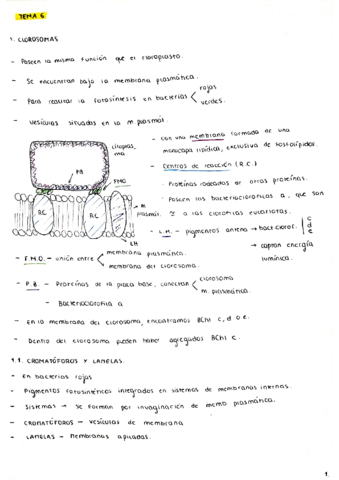 TEMA 6
1. CLOROSOMAS
- Poseen la misma función que el cloroplasto.
- Se encuentran bajo la membrana plasmática.
- Para realizar la fotosíntesis en bacterias < rojas
verdes.
- Vesículas situadas en la m plasmát.
citoplas,
ma.
PB
FMO
RC
RC
RC
m
plasmát.
LH
- con una membrana formada de una
monocapa lipídica, exclusiva de fosfolípidos.
- Centros de reacción (R.C.)
Proteínas rodeadas de otras proteínas.
Poseen las bacterioclorofilas a, que son
≃ a las clorofilas eucariotas.
- L.H. - pigmentos antena → bacterioclorof. c
d
e
→ captan energía
lumínica.
- F.M.O. - unión entre < membrana plasmática.
membrana del clorosoma.
- P.B. - Proteínas de la placa base, conectan < clorosoma
m. plasmática.
- Bacterioclorofila a
- En la membrana del clorosoma, encontramos BChl c, d o e.
- Dentro del clorosoma pueden haber agregados BChl c.
1.1. CROMATÓFOROS Y LAMELAS.
- En bacterias rojas
- Pigmentos fotosintéticos integrados en sistemas de membranas internas.
- Sistemas → se forman por invaginación de memb plasmática.
- CROMATÓFOROS - vesículas de membrana
- LAMELAS - Membranas apiladas.
1.